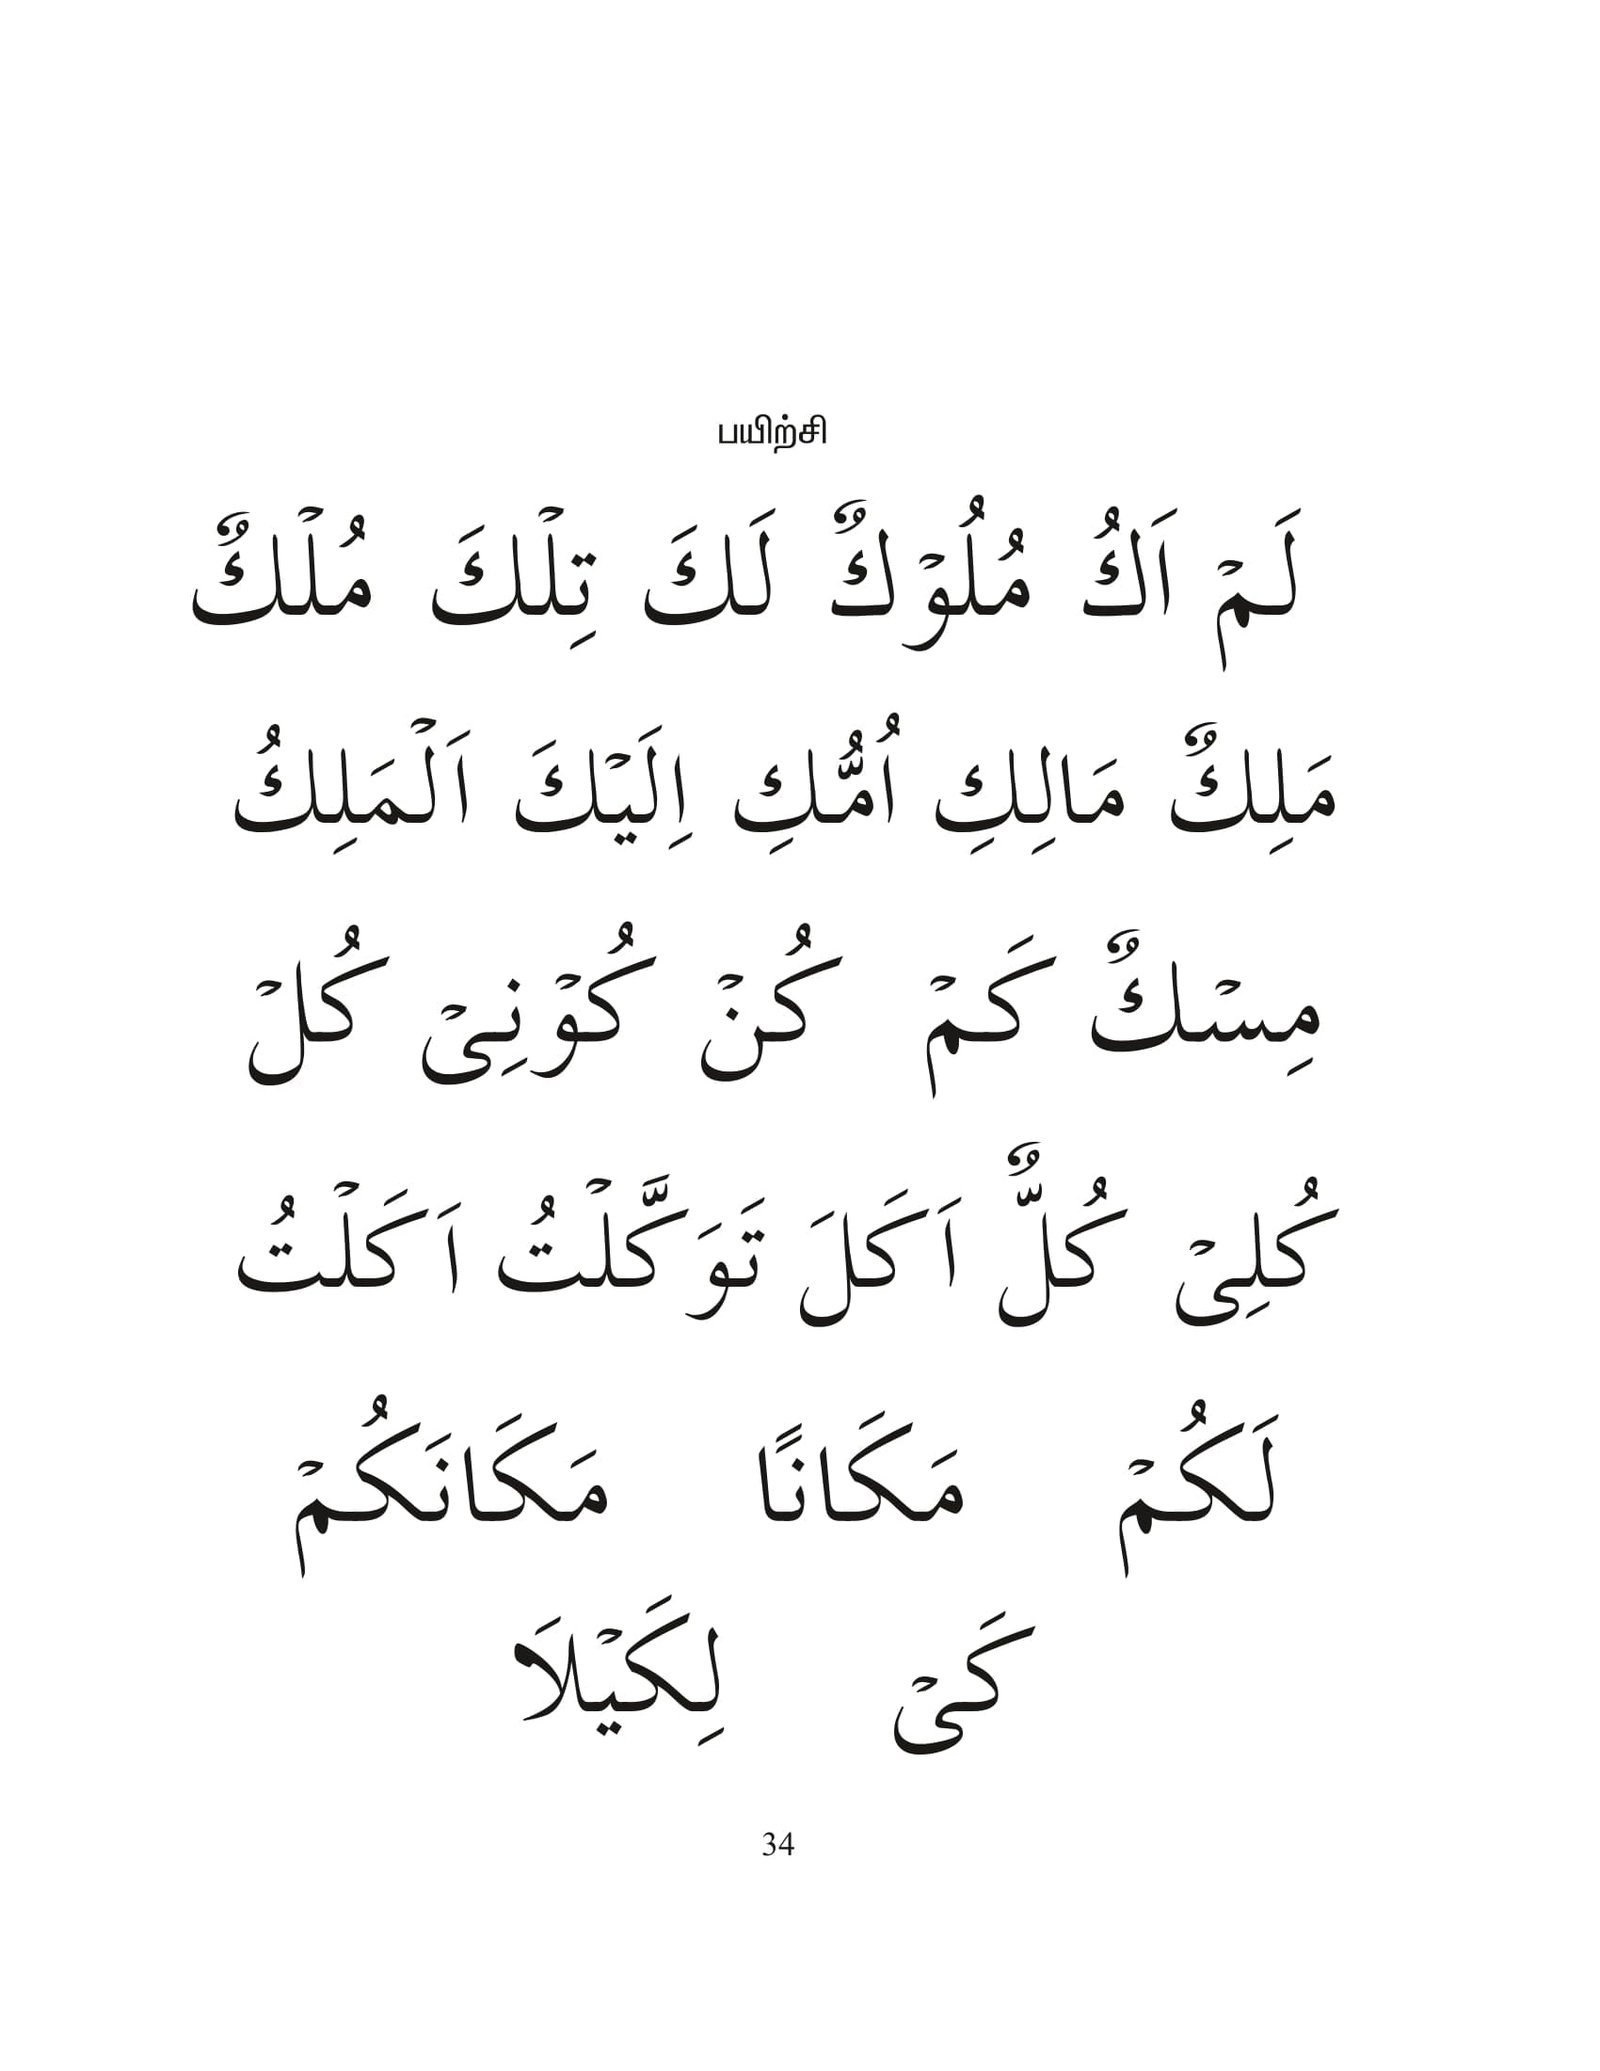 பயிற்சி
لَمْ اَكُ مُلُوْكٌ لَكَ تِلْكَ مُلْكٌ
مَلِكٌ مَالِكِ اُمُّكِ اِلَيْكَ اَلْمَلِكُ
مِسْكٌ كَمْ كُنْ كُوْنِىْ كُلْ
كُلِىْ كُلٌّ اَكَلَ تَوَكَّلْتُ اَكَلْتُ
لَكُمْ مَكَانًا مَكَانَكُمْ
كَىْ لِكَيْلَا
34